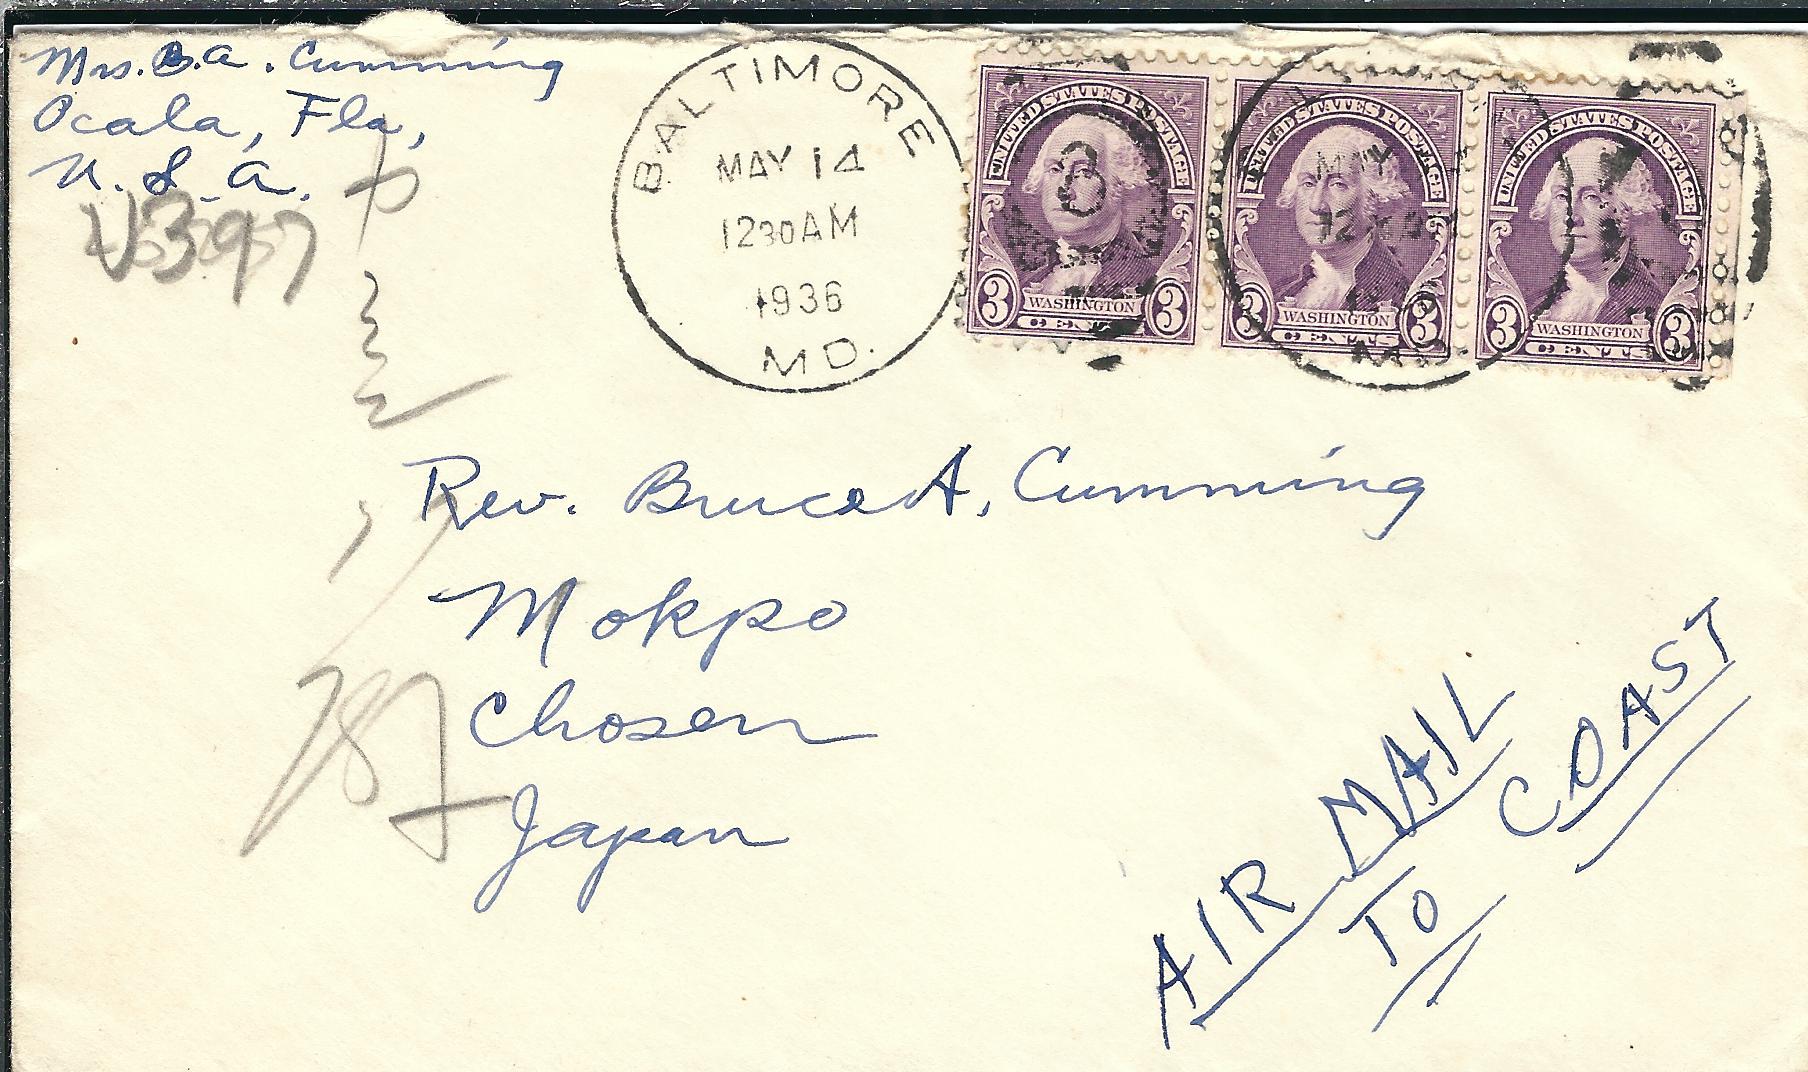 Mrs. B. A. Cumming
Ocala, Fla,
U. S. A.
V3397
BALTIMORE
MAY 14
1230AM
1936
MD.
UNITED STATES POSTAGE
3 WASHINGTON 3
CENTS
UNITED STATES POSTAGE
3 WASHINGTON 3
CENTS
UNITED STATES POSTAGE
3 WASHINGTON 3
CENTS
Rev. Bruce A. Cumming
Mokpo
Chosen
Japan
AIR MAIL
TO
COAST